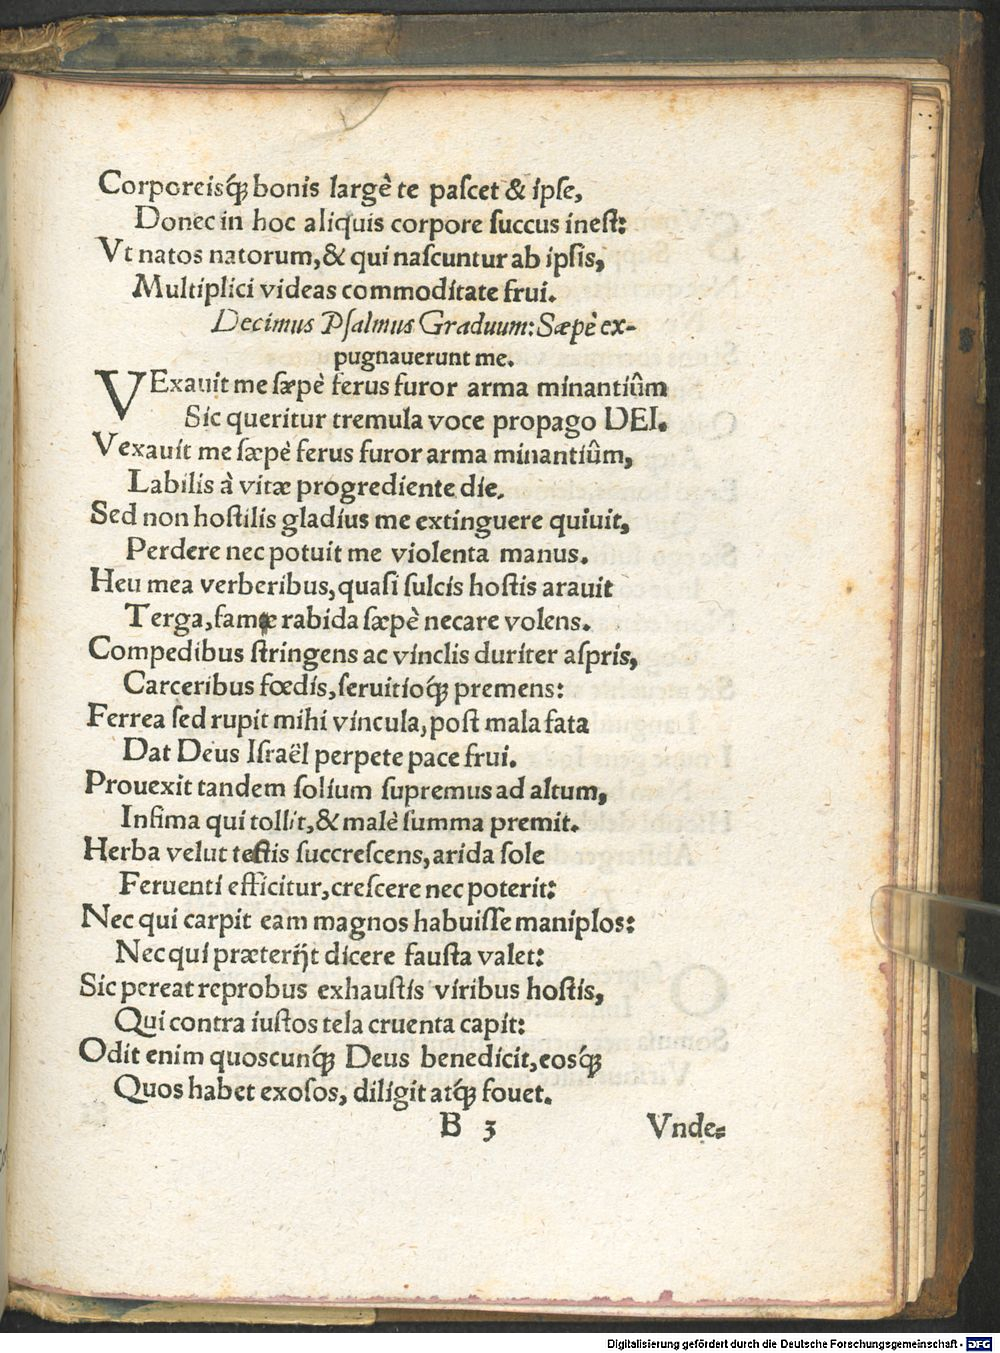 Corporeisq́; bonis largè te paſcet & ipſe,
Donec in hoc aliquis corpore ſuccus ineſt:
Vt natos natorum, & qui naſcuntur ab ipſis,
Multiplici videas commoditate frui.
Decimus Pſalmus Graduum: Sæpè ex-
pugnauerunt me.
VExauit me ſæpè ferus furor arma minantiûm
Sic queritur tremula voce propago DEI.
Vexauit me ſæpè ferus furor arma minantiûm,
Labilis à vitæ progrediente die.
Sed non hoſtilis gladius me extinguere quiuit,
Perdere nec potuit me violenta manus.
Heu mea verberibus, quaſi ſulcis hoſtis arauit
Terga, famæ rabida ſæpè necare volens.
Compedibus ſtringens ac vinclis duriter aſpris,
Carceribus fœdis, ſeruitioq́; premens:
Ferrea ſed rupit mihi vincula, poſt mala fata
Dat Deus Iſraël perpete pace frui.
Prouexit tandem ſolium ſupremus ad altum,
Infima qui tollit, & malè ſumma premit.
Herba velut teſtis ſuccreſcens, arida ſole
Feruenti efficitur, creſcere nec poterit:
Nec qui carpit eam magnos habuiſſe maniplos:
Nec qui præterijt dicere fauſta valet:
Sic pereat reprobus exhauſtis viribus hoſtis,
Qui contra iuſtos tela cruenta capit:
Odit enim quoscunq́; Deus benedicit, eosq́;
Quos habet exoſos, diligit atq́; fouet.
B 3 Vnde-
Digitalisierung gefördert durch die Deutsche Forschungsgemeinschaft - DFG